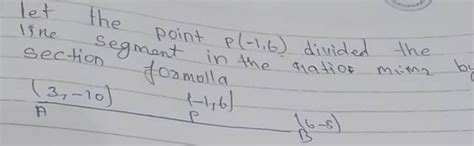 let the point p(-1,6) divided the
line segment in the ratios m1:m2 by
section formolla
(3,-10) (-1,6) (6-8)
A P B